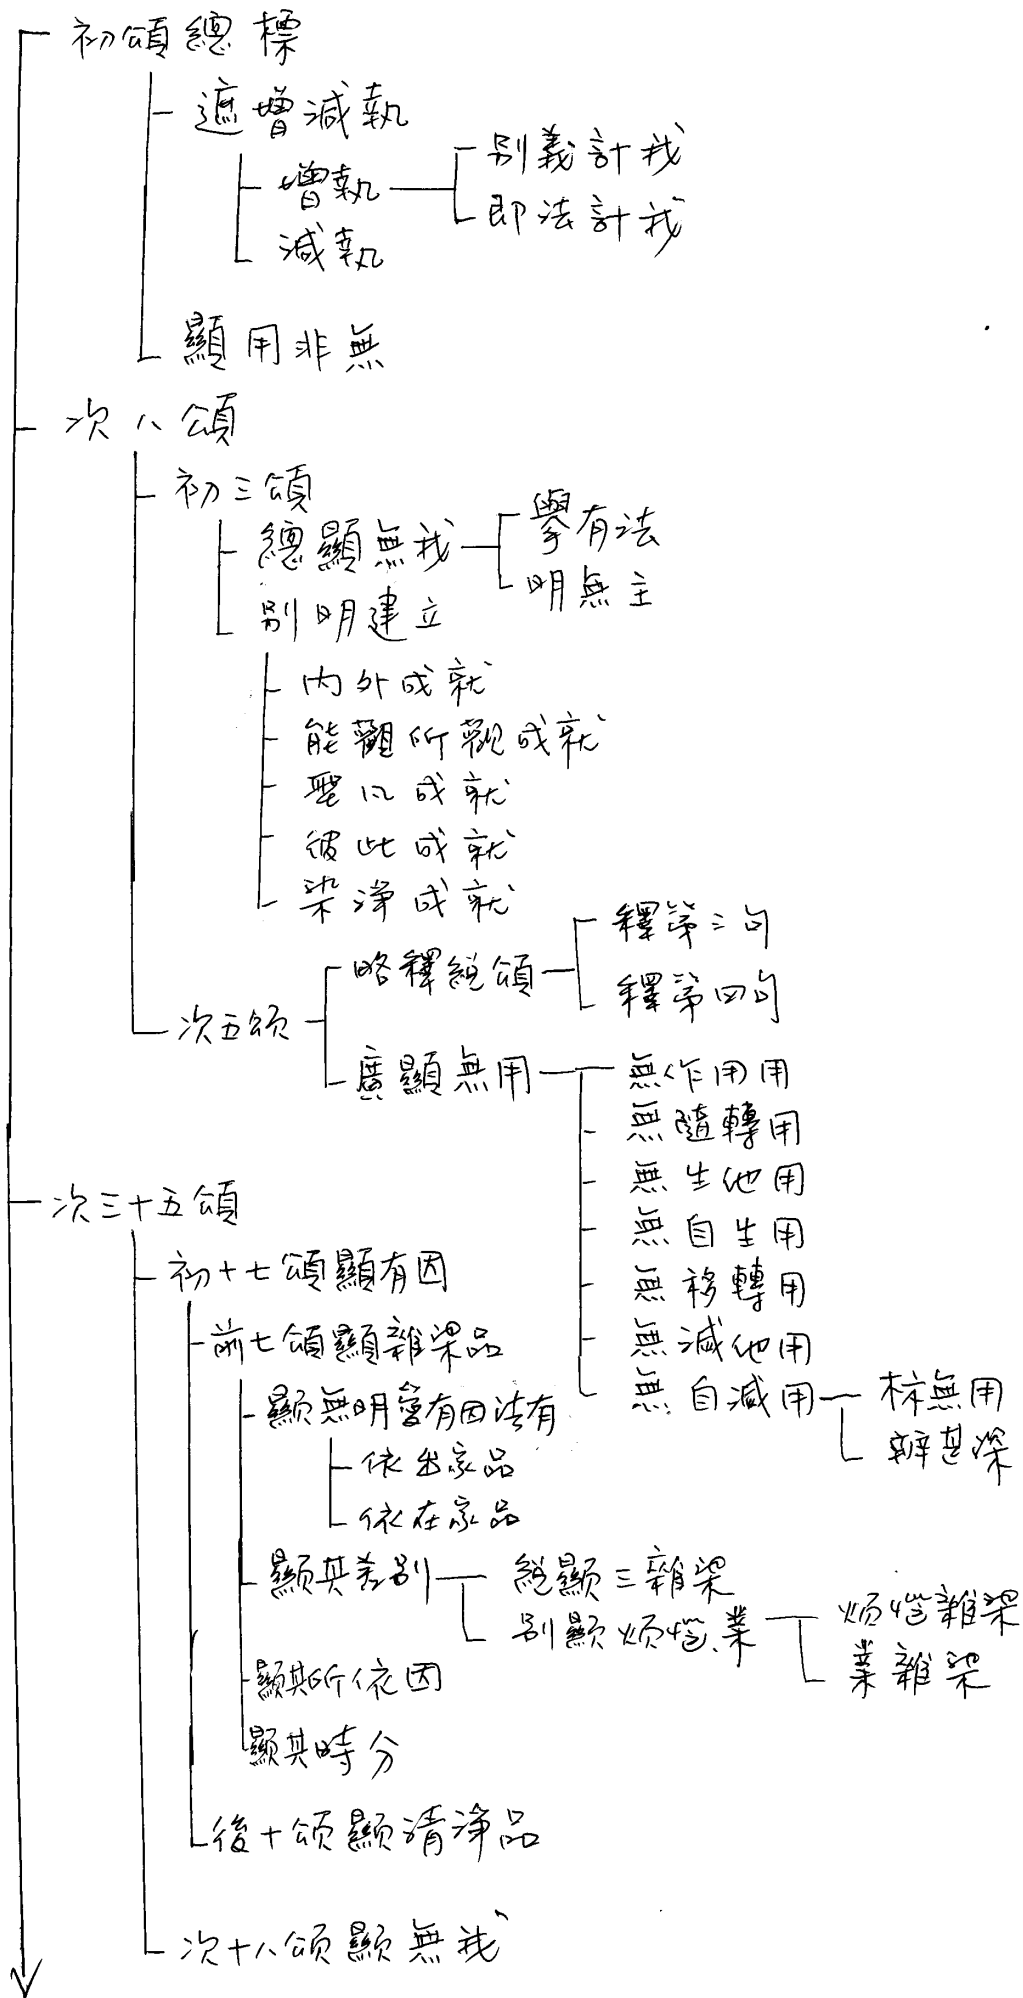 初頌總標
遮增減執
增執
別義計我
即法計我
減執
顯用非無
次八頌
初三頌
總顯無我
舉有法
明無主
別明建立
內外成就
能觀所觀成就
聖凡成就
彼此成就
染淨成就
次五頌
略釋總頌
釋第三句
釋第四句
廣顯無用
無作用用
無隨轉用
無生他用
無自生用
無移轉用
無減他用
無自減用
標無用
辨甚深
次三十五頌
初十七頌顯有因
前七頌顯雜染品
顯無明等有因法有
依出家品
依在家品
顯其差別
總顯三雜染
別顯煩惱、業
煩惱雜染
業雜染
顯其所依因
顯其時分
後十頌顯清淨品
次十八頌顯無我